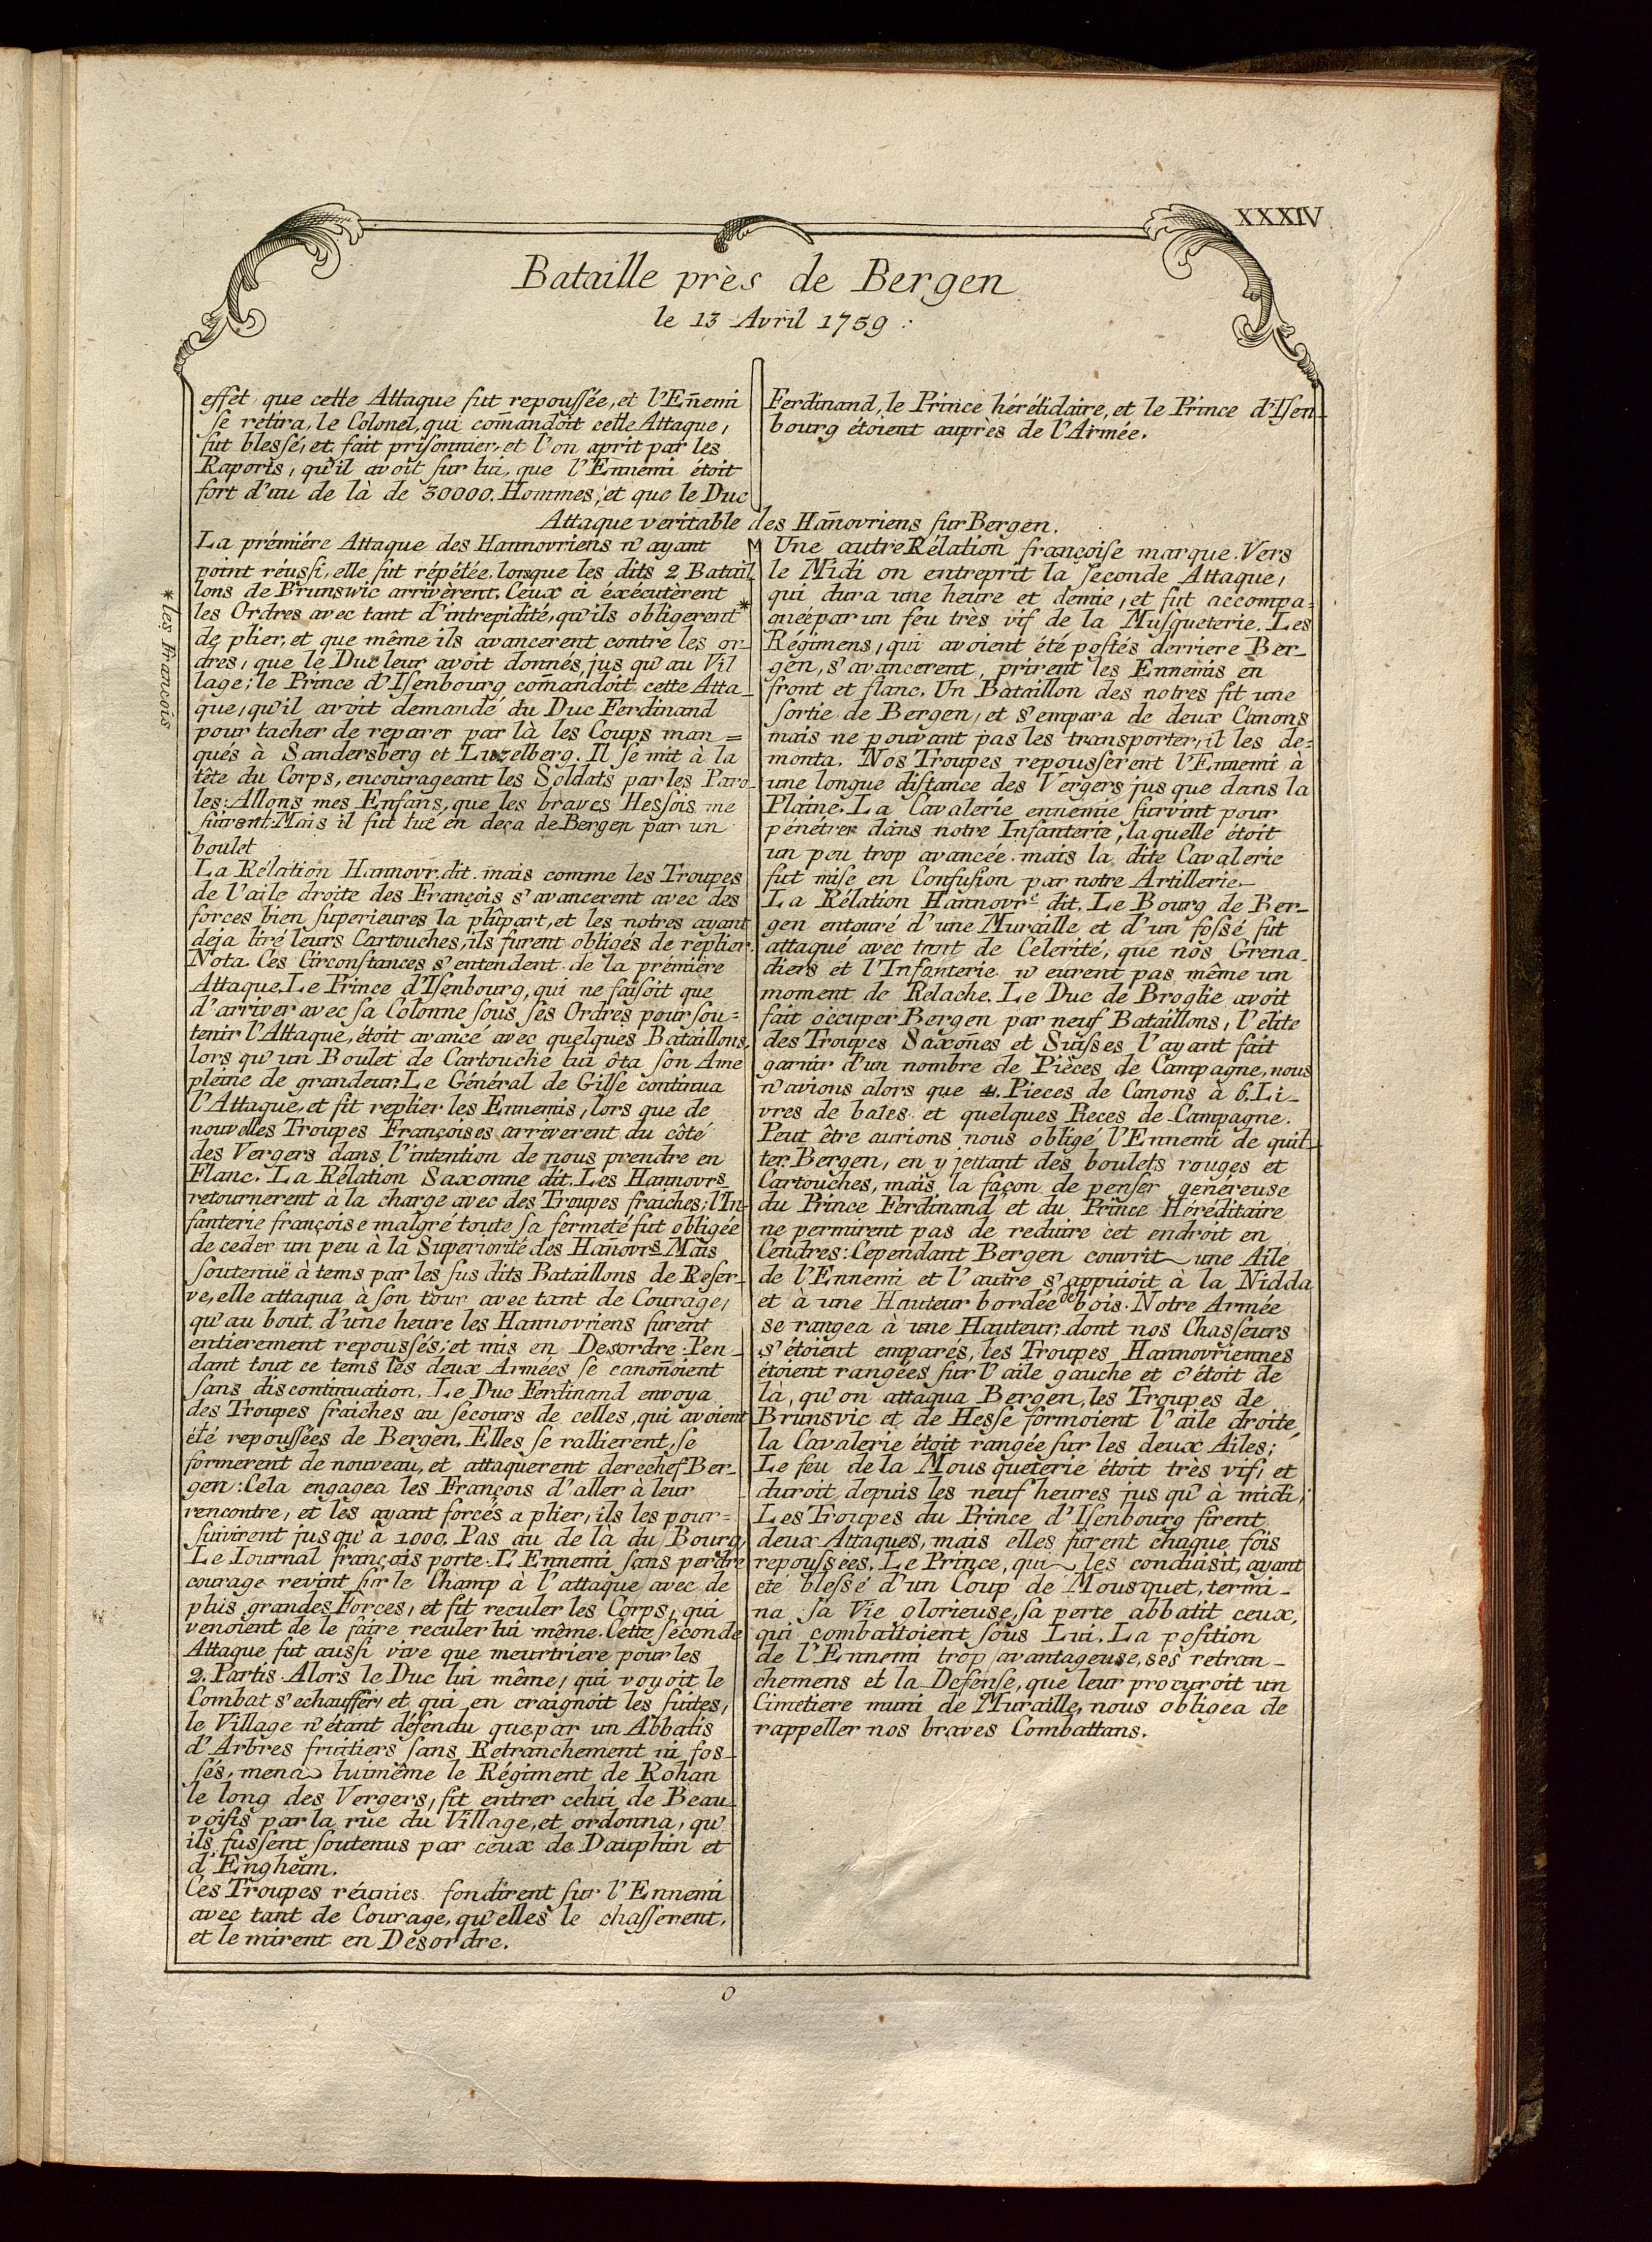 XXXIV
Bataille près de Bergen
le 13 Avril 1759 :
effet, que cette Attaque fut repoussée, et l'Eñemi
se rétira, le Colonel, qui com̄andoit cette Attaque,
fut blessé, et fait prisonnier, et l'on aprit par les
Raports, qu'il avoit sur lui, que l'Ennemi étoit
fort d'au de là de 30000. Hommes, et que le Duc
Ferdinand, le Prince hérétidaire, et le Prince d'Isen-
bourg étoient auprès de l'Armée.
Attaque veritable des Hañovriens sur Bergen.
La prémiére Attaque des Hannovriens n'ayant
point réussi, elle fut répétée, lorsque les dits 2 Batail
lons de Brunswic arrivèrent. Ceux ci éxécutèrent
les Ordres avec tant d'intrepidité, qu'ils obligerent *
de plier, et que même ils avancerent contre les or-
dres, que le Duc leur avoit donnés, jus qu'au Vil
lage; le Prince d'Isenbourg com̄andoit cette Atta-
que, qu'il avoit demandé du Duc Ferdinand
pour tacher de reparer par là les Coups man=
qués à Sandersberg et Luzelberg. Il se mit à la
tête du Corps, encourageant les Soldats par les Paro
les: Allons mes Enfans, que les braves Hessois me
suivent. Mais il fut tué en deça de Bergen par un
boulet
La Rélation Hannovr. dit. mais comme les Troupes
de l'aile droite des François s'avancerent avec des
forces bien superieures la plûpart, et les notres ayant
deja tiré leurs Cartouches, ils furent obligés de replier.
Nota. Ces Circonstances s'entendent de la prémière
Attaque. Le Prince d'Isenbourg, qui ne faisoit que
d'arriver avec sa Colonne sous ses Ordres pour sou=
tenir l'Attaque, étoit avancé avec quelques Bataillons,
lors qu'un Boulet de Cartouche lui ôta son Ame
pleine de grandeur. Le Général de Gilse continua
l'Attaque, et fit replier les Ennemis, lors que de
nouvelles Troupes Françoises arriverent du côté
des Vergers dans l'intention de nous prendre en
Flanc. La Rélation Saxonne dit. Les Hannovrs
retournerent à la charge avec des Troupes fraiches; l'In-
fanterie françoise malgré toute sa fermeté fut obligée
de ceder un peu à la Superiorité des Hañovrs. Mais
soutenuë à tems par les sus dits Bataillons de Reser-
ve, elle attaqua à son tour avec tant de Courage,
qu'au bout d'une heure les Hannovriens furent
entierement repoussés, et mis en Desordre. Pen-
dant tout ce tems les deux Armées se canoñoient
sans discontinuation. Le Duc Ferdinand envoya
des Troupes fraiches au secours de celles, qui avoient
été repoussées de Bergen. Elles se rallierent, se
formerent de nouveau, et attaquerent derechef Ber-
gen: Cela engagea les François d'aller à leur
rencontre, et les ayant forcés a plier, ils les pour=
suivirent jusqu'à 1000. Pas au de là du Bourg,
Le Iournal françois porte. L'Ennemi sans perdre
courage revint sur le Champ à l'attaque avec de
plus grandes Forces, et fit reculer les Corps, qui
venoient de le faire reculer lui même. Cette seconde
Attaque fut aussi vive que meurtriere pour les
2. Partis. Alors le Duc lui même, qui voyoit le
Combat s'echauffer, et qui en craignoit les suites,
le Village n'étant défendu que par un Abbatis
d'Arbres fruitiers sans Retranchement ni fos-
sés, mena luimême le Régiment de Rohan
le long des Vergers, fit entrer celui de Beau-
voisis par la rue du Village, et ordonna, qu'
ils fussent soutenus par ceux de Dauphin et
d'Engheim.
Ces Troupes réunies fondirent sur l'Ennemi
avec tant de Courage, qu'elles le chasserent,
et le mirent en Desordre.
* les François
Une autre Rélation françoise marque. Vers
le Midi on entreprit la seconde Attaque,
qui dura une heure et demie, et fut accompa=
gnée par un feu très vif de la Musqueterie. Les
Régimens, qui avoient été postés derriere Ber-
gen, s'avancerent, prirent les Ennemis en
front et flanc. Un Bataillon des notres fit une
sortie de Bergen, et s'empara de deux Canons
mais ne pouvant pas les transporter, il les de=
monta. Nos Troupes repousserent l'Ennemi à
une longue distance des Vergers jus que dans la
Plaine. La Cavalerie ennemie survint pour
pénétrer dans notre Infanterie, laquelle étoit
un peu trop avancée. mais la dite Cavalerie
fut mise en Confusion par notre Artillerie.
La Rélation Hannovre dit. Le Bourg de Ber-
gen entouré d'une Muraille et d'un fossé fut
attaqué avec tant de Celerité, que nos Grena-
diers et l'Infanterie n'eurent pas même un
moment de Relache. Le Duc de Broglie avoit
fait occuper Bergen par neuf Bataillons, l'élite
des Troupes Saxoñes et Suisses l'ayant fait
garnir d'un nombre de Pièces de Campagne, nous
n'avions alors que 4. Pieces de Canons à 6. Li-
vres de bales et quelques Pieces de Campagne.
Peut être aurions nous obligé l'Ennemi de quit-
ter Bergen, en y jettant des boulets rouges et
Cartouches, mais la façon de penser genéreuse
du Prince Ferdinand et du Prince Héréditaire
ne permirent pas de reduire cet endroit en
Cendres: Cependant Bergen couvrit une Aile
de l'Ennemi et l'autre s'appuioit à la Nidda
et à une Hauteur bordée de bois. Notre Armée
se rangea à une Hauteur, dont nos Chasseurs
s'étoient emparés, les Troupes Hannovriennes
étoient rangées sur l'aile gauche et c'étoit de
là, qu'on attaqua Bergen, les Troupes de
Brunsvic et de Hesse formoient l'aile droite,
la Cavalerie étoit rangée sur les deux Ailes;
Le feu de la Mousqueterie étoit très vif, et
duroit depuis les neuf heures jus qu'à midi,
Les Troupes du Prince d'Isenbourg firent
deux Attaques, mais elles furent chaque fois
repoussées. Le Prince, qui les conduisit, ayant
eté blessé d'un Coup de Mousquet, termi-
na sa Vie glorieuse, sa perte abbatit ceux,
qui combattoient sous Lui. La position
de l'Ennemi trop avantageuse, ses retran-
chemens et la Defense, que leur procuroit un
Cimetiere muni de Muraille, nous obligea de
rappeller nos braves Combattans.
O